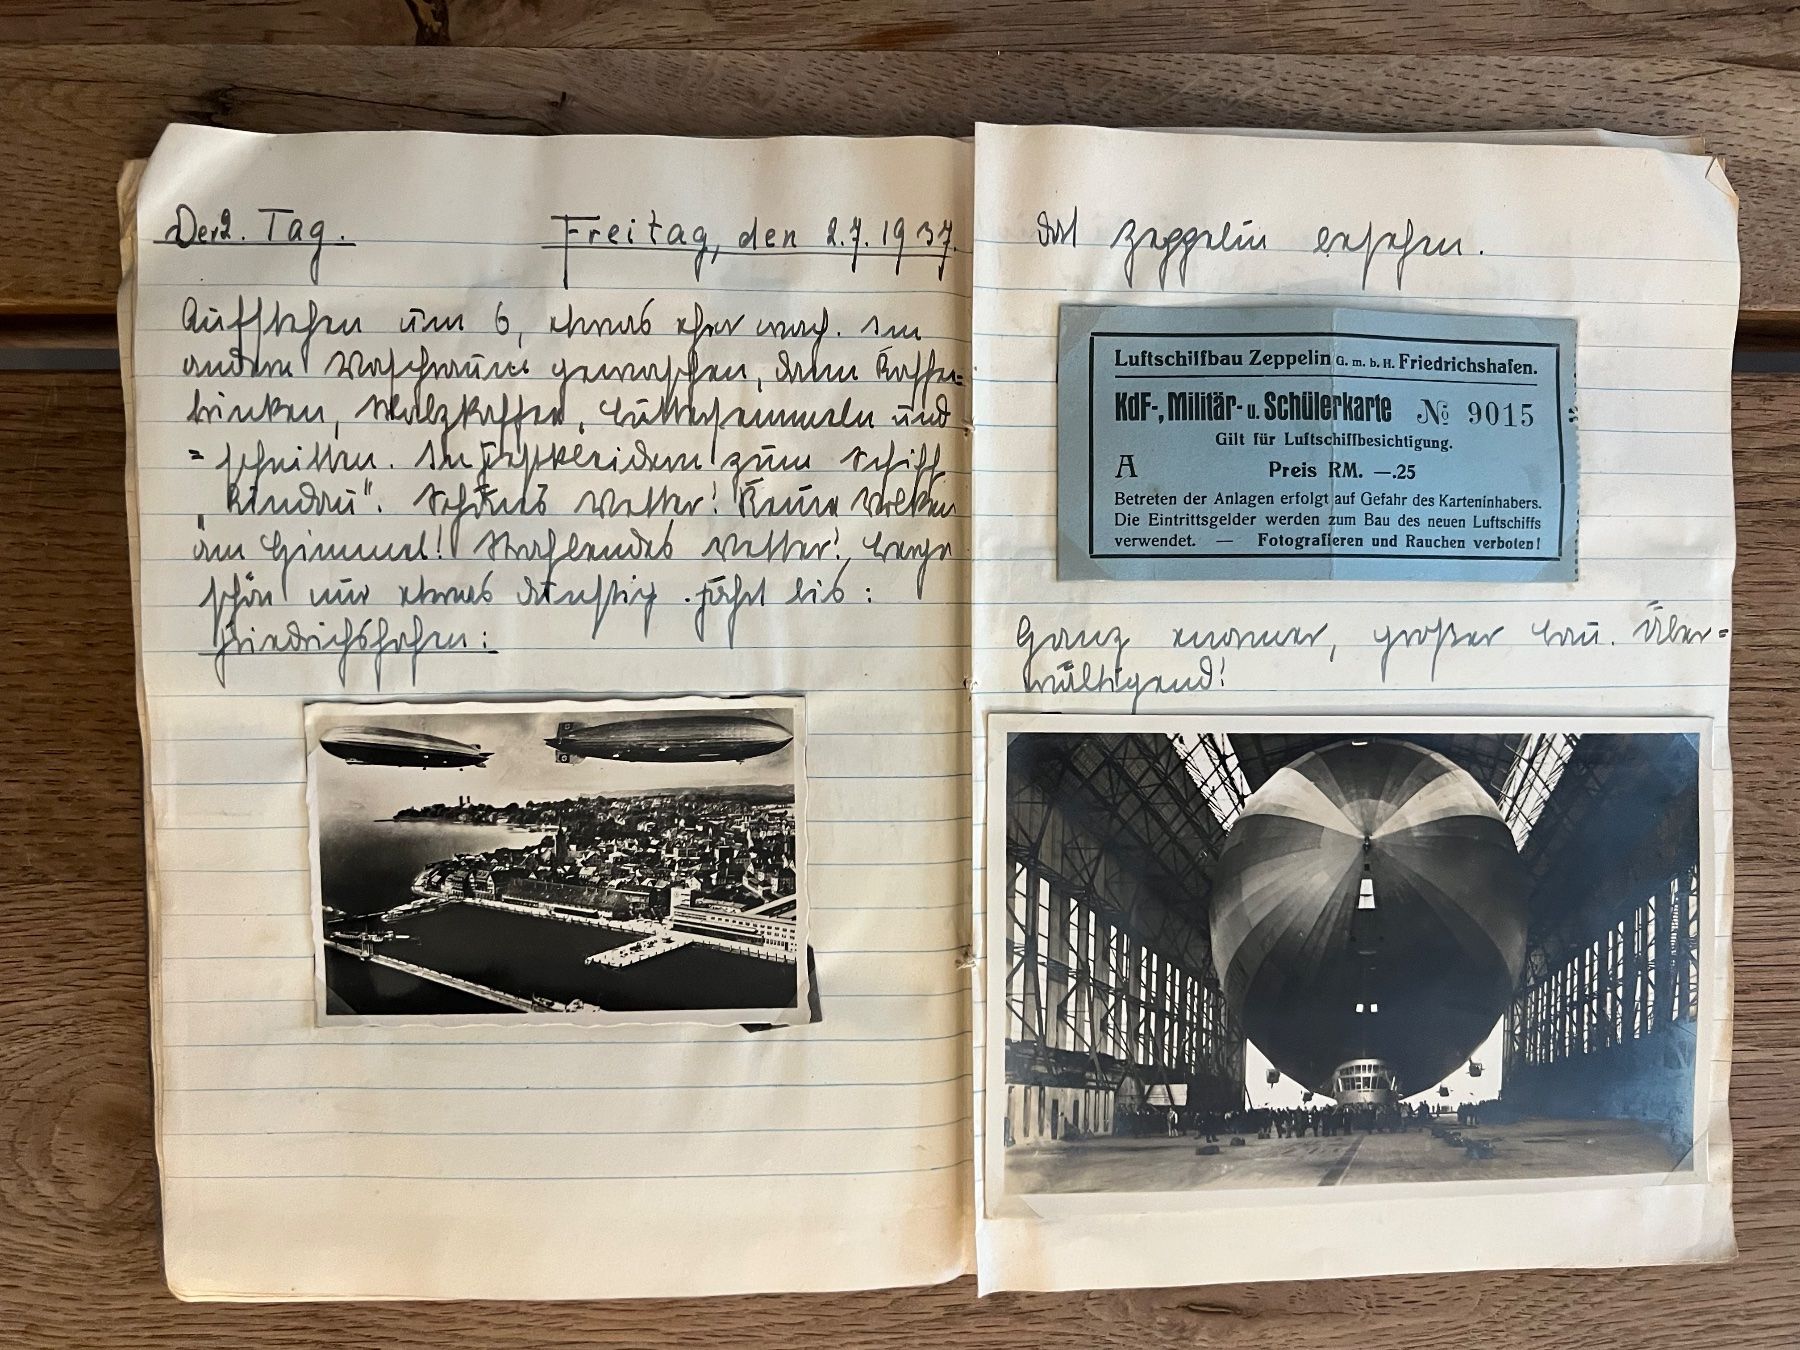 Der 2. Tag. Freitag, den 2.7.1937.
Aufstehen um 6, etwas eher wach. Im
andern Waschraum gewaschen, dann Kaffee=
trinken, Malzkaffee, Buttersemmeln und
= schnitten. In Festkleidern zum Schiff
„Lindau“. Schönes Wetter! Keine Wolken
am Himmel! Strahlendes Wetter! Berge
schön nur etwas dunstig. Fahrt bis:
Friedrichshafen:
Zeppelin besehen.
Luftschiffbau Zeppelin G. m. b. H. Friedrichshafen.
KdF-, Militär- u. Schülerkarte № 9015
Gilt für Luftschiffbesichtigung.
A Preis RM. —.25
Betreten der Anlagen erfolgt auf Gefahr des Karteninhabers.
Die Eintrittsgelder werden zum Bau des neuen Luftschiffs
verwendet. — Fotografieren und Rauchen verboten!
Ganz enormer, großer Bau. Über=
wältigend!